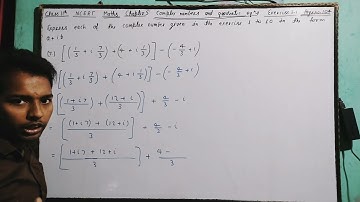 Class 11th NCERT Maths Chapter 5 Complex numbers and quadratic eqn Exercise 5.1
Express each of the complex number given in the exercise 1 to 10 in the form
a + i b
[(1/3 + i 7/3) + (4 + i 1/3)] - (-4/3 + i)
[(1/3 + i 7/3) + (4 + i 1/3)] - (-4/3 + i)
= [(1 + i 7)/3 + (12 + i)/3] + 4/3 - i
= [((1 + i 7) + (12 + i))/3] + 4/3 - i
= [(1 + i 7 + 12 + i)/3] + (4 -)/3